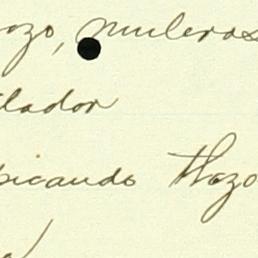 ozo, muleros
llador
picando Hozo